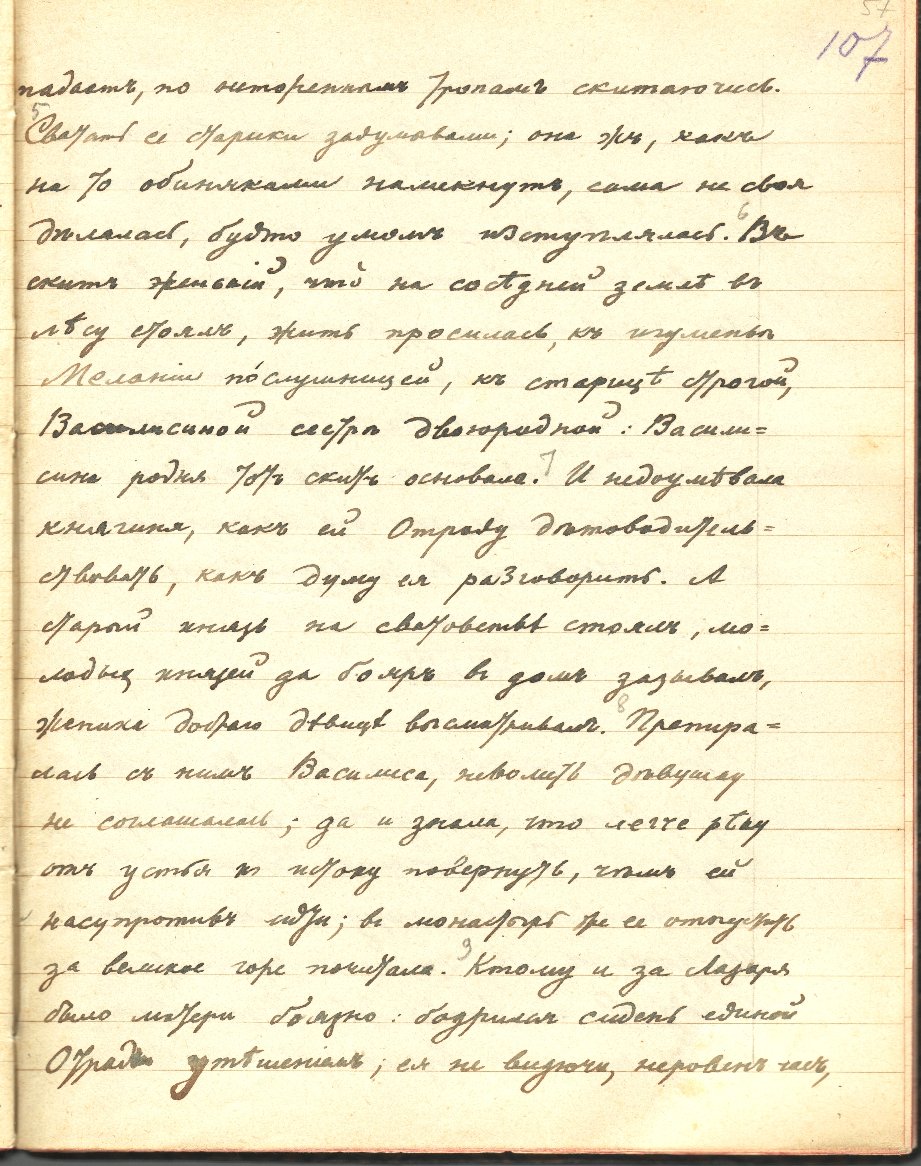 57
107
падаетъ, по неторенымъ тропамъ скитаючись.
5
Сватать ее старики задумывали; она жъ, какъ
на то обиняками намекнутъ, сама не своя
дѣлалась, будто умомъ изступлялась. 6 Въ
скитъ женскій, что на сосѣдней землѣ въ
лѣсу стоялъ, жить просилась, къ игуменьѣ
Меланіи послушницей, къ старицѣ строгой,
Василисиной сестрѣ двоюродной: Васили=
сина родня тотъ скитъ основала. 7 И недоумѣвала
княгиня, какъ ей Отраду дѣтоводитель=
ствовать, какъ думу ея разговорить. А
старый князь на сватовствѣ стоялъ, мо=
лодыхъ князей да бояръ въ домъ зазывалъ,
жениха доброго дѣвицѣ высматривалъ. 8 Препира=
лась съ нимъ Василиса, неволить дѣвушку
не соглашалась; да и знала, что легче рѣку
отъ устья къ истоку повернуть, чѣмъ ей
насупротивъ идти; въ монастырь же ее отпустить
за великое горе почитала. 9 Ктому и за Лазаря
было матери боязно: бодрился сидень единой
Отрады утѣшеніемъ; ея не видючи, неровенъ часъ,